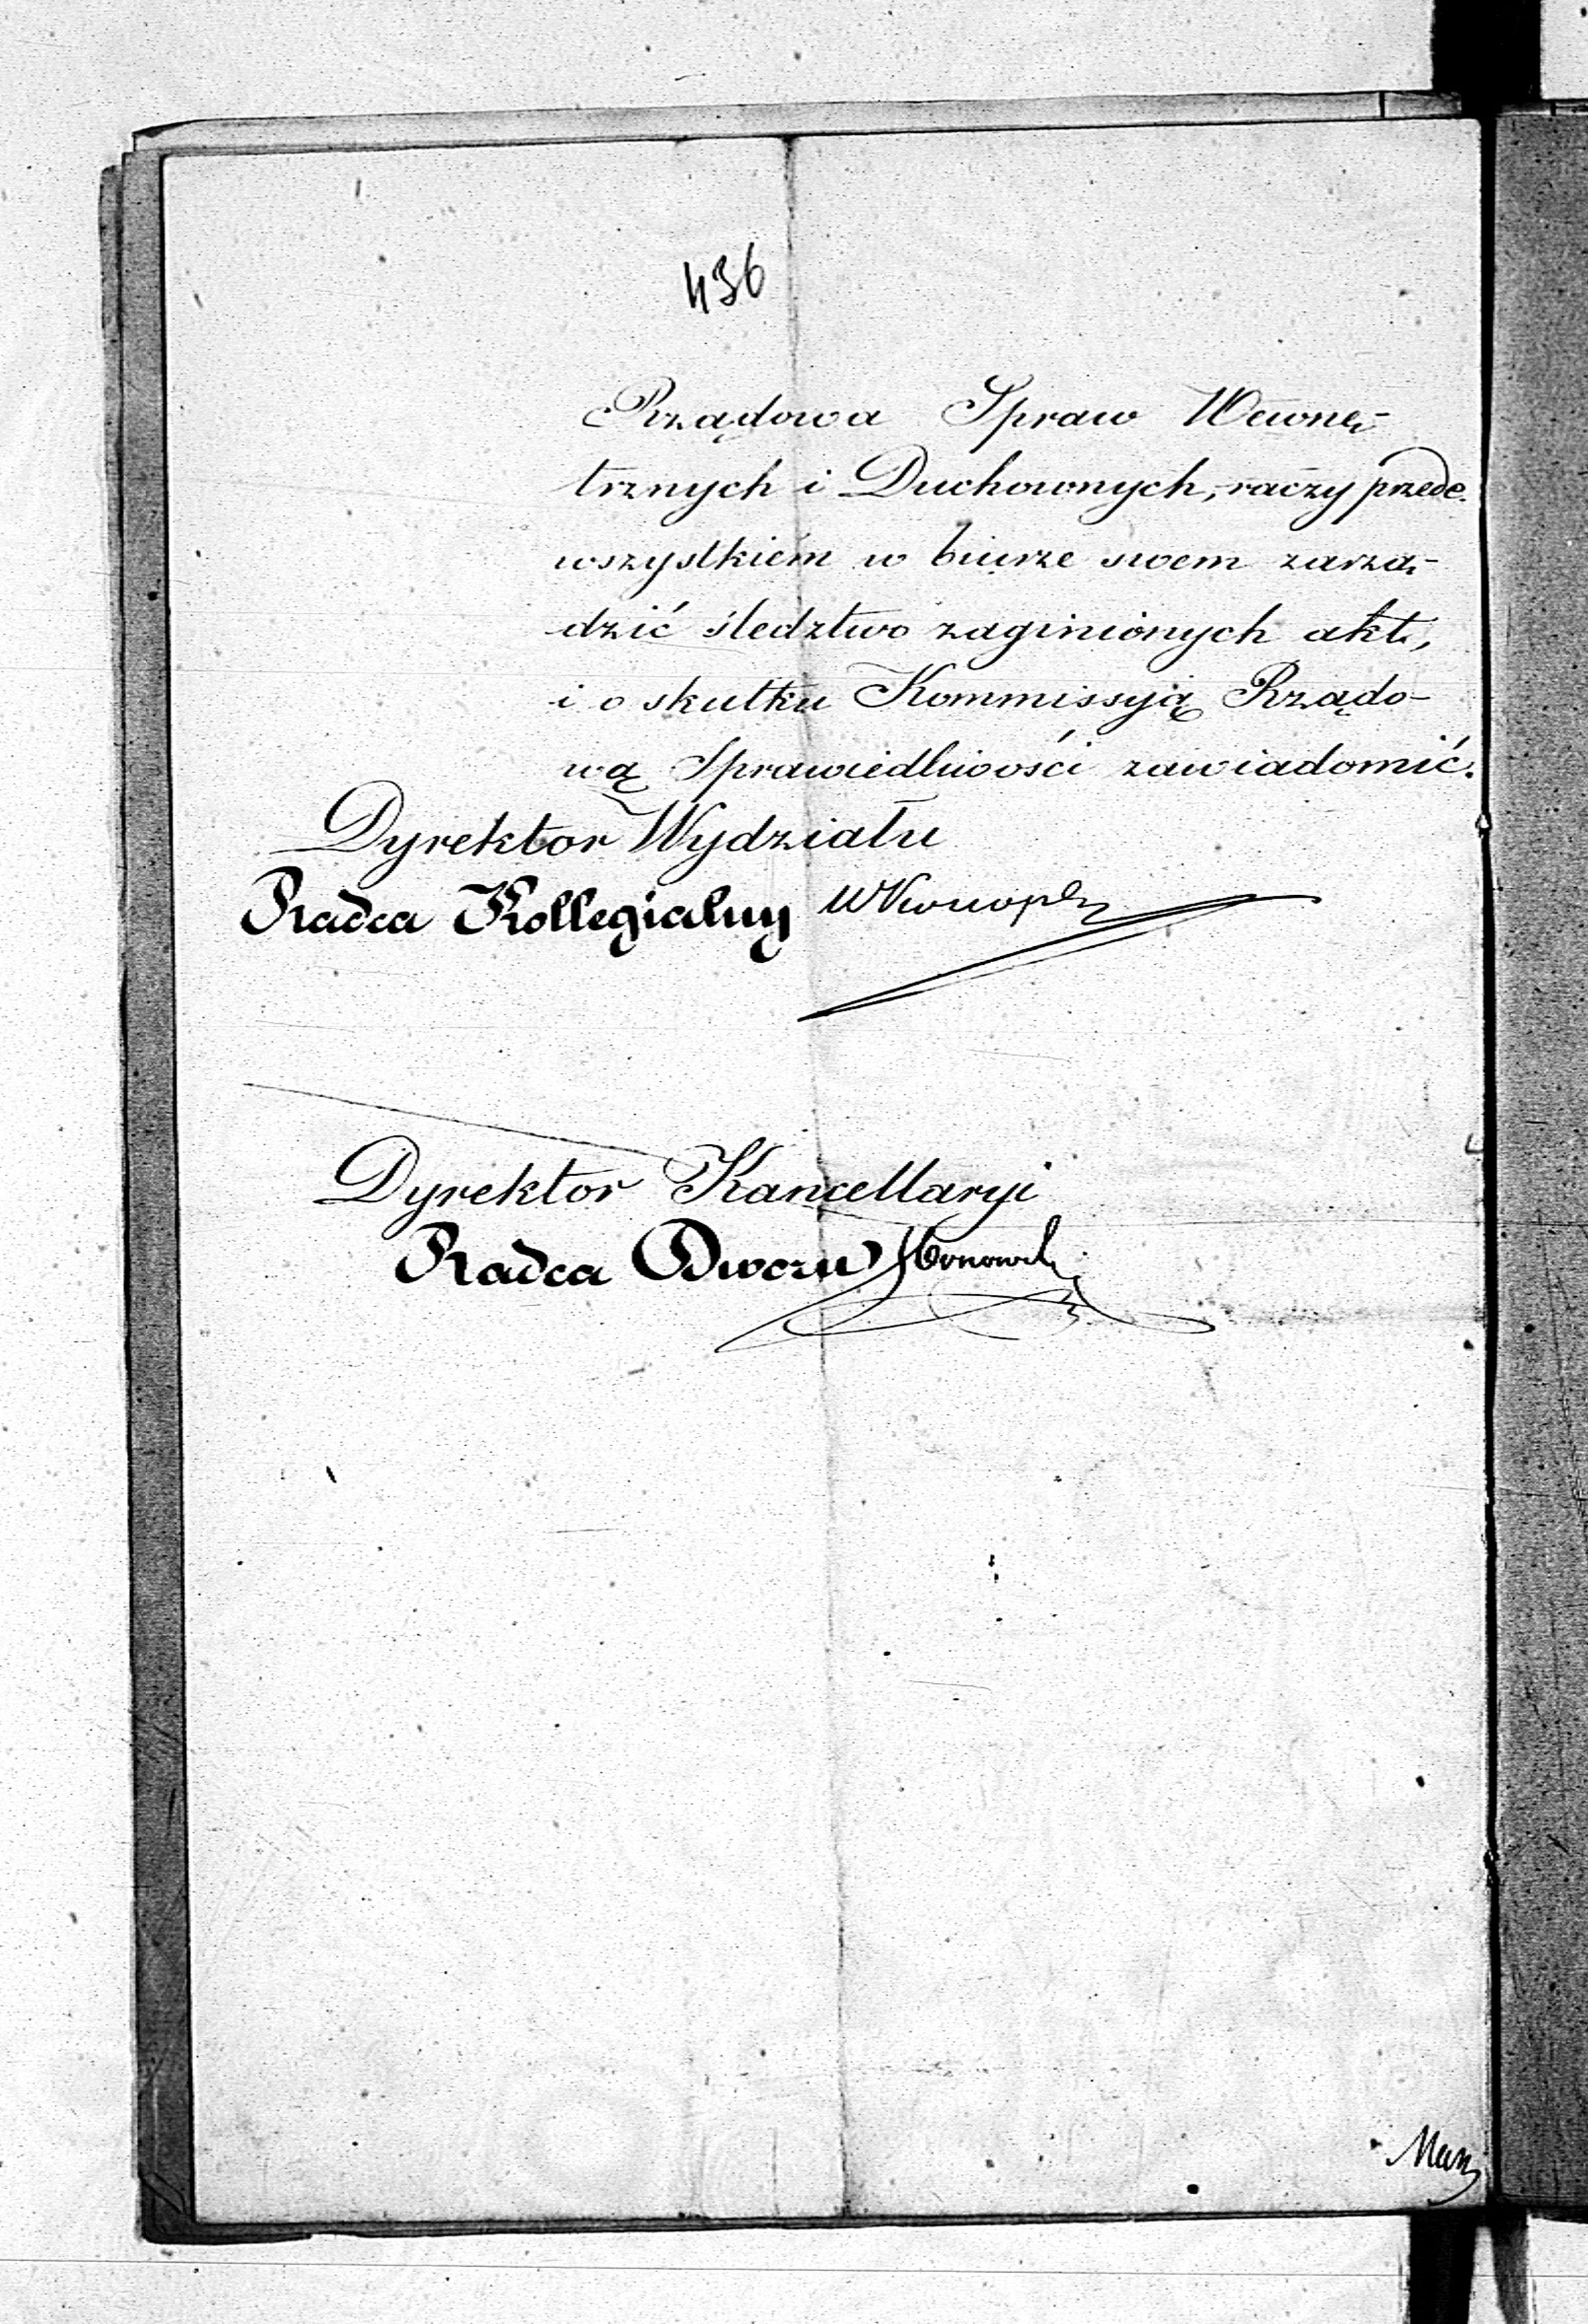 436
Rządowa Spraw Wewnę-
trznych i Duchownych, raczy przede
wszystkiém w biurze swem zarzą-
dzić śledztwo zaginionych akt,
i o skutku Kommissyją Rządo-
wą Sprawiedliwości zawiadomić.
Dyrektor Wydziału
Radca Kollegialny
Dyrektor Kancellaryi
Radca Dworu